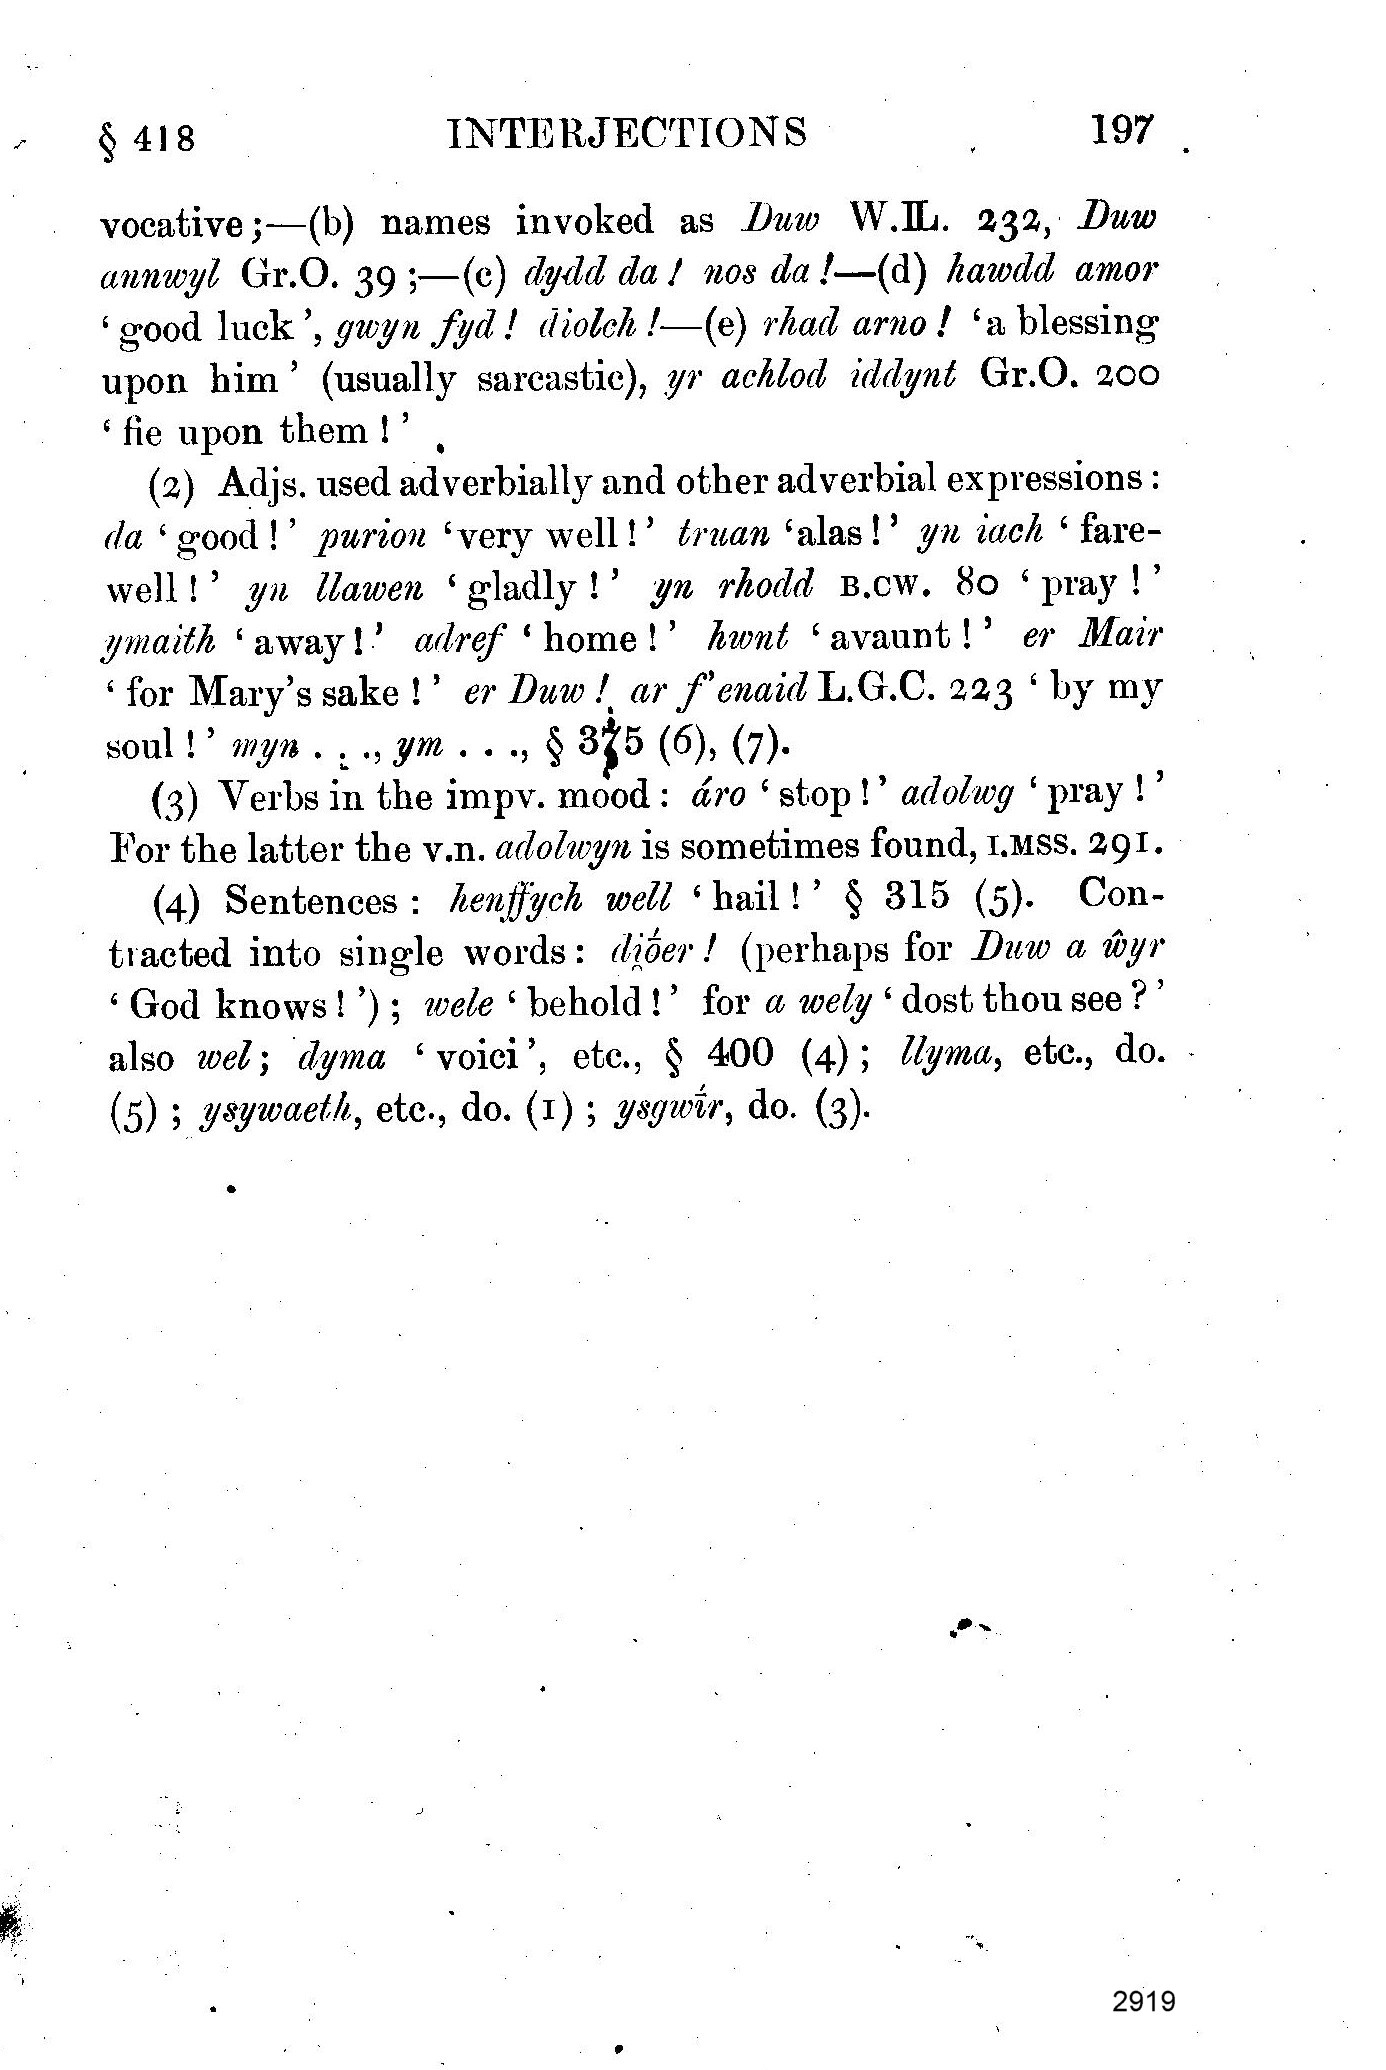 § 418 INTERJECTIONS 197
vocative;—(b) names invoked as Duw W.IL. 232, Duw
annwyl Gr.O. 39;—(c) dydd da! nos da!—(d) hawdd amor
‘good luck’, gwyn fyd! diolch!—(e) rhad arno! ‘a blessing
upon him’ (usually sarcastic), yr achlod iddynt Gr.O. 200
‘fie upon them!’
(2) Adjs. used adverbially and other adverbial expressions:
da ‘good!’ purion ‘very well!’ truan ‘alas!’ yn iach ‘fare-
well!’ yn llawen ‘gladly!’ yn rhodd B.CW. 80 ‘pray!’
ymaith ‘away!’ adref ‘home!’ hwnt ‘avaunt!’ er Mair
‘for Mary’s sake!’ er Duw! ar f’enaid L.G.C. 223 ‘by my
soul!’ myn . . ., ym . . ., § 375 (6), (7).
(3) Verbs in the impv. mood: áro ‘stop!’ adolwg ‘pray!’
For the latter the v.n. adolwyn is sometimes found, I.MSS. 291.
(4) Sentences: henffych well ‘hail!’ § 315 (5). Con-
tracted into single words: di̯ṓer! (perhaps for Duw a ŵyr
‘God knows!’); wele ‘behold!’ for a wely ‘dost thou see?’
also wel; dyma ‘voici’, etc., § 400 (4); llyma, etc., do.
(5); ysywaeth, etc., do. (1); ysgwī́r, do. (3).
2919